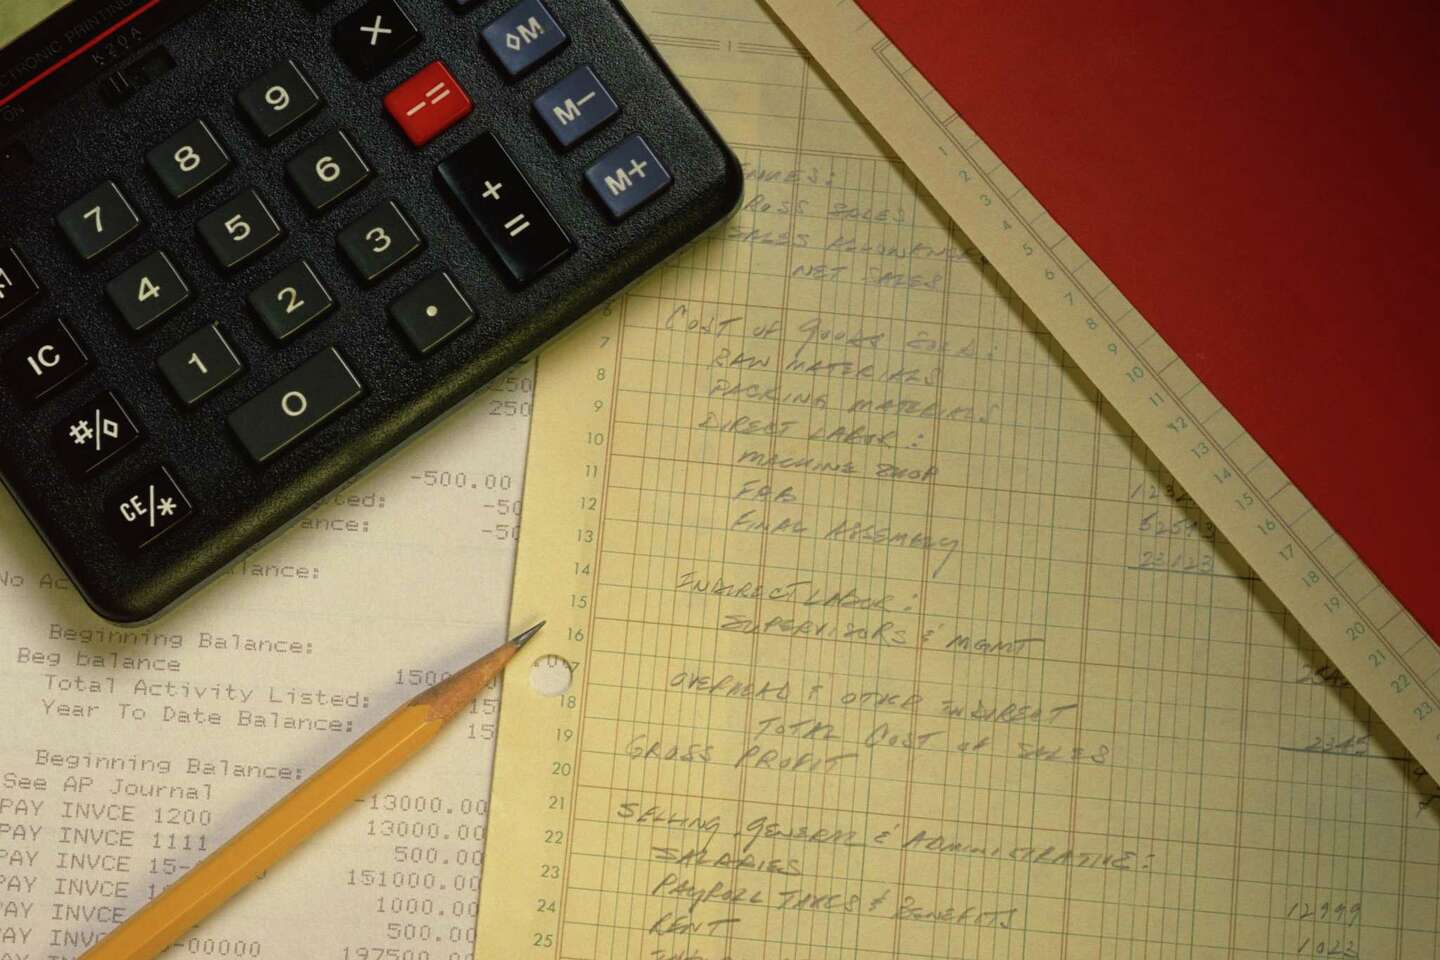 CTRONIC PRINTING
K-20A
ON
X
◊M
9
-=
M-
8
6
+
=
M+
7
5
3
4
2
.
IC
1
0
#/◊
CE/*
250
250
-500.00
ted: -50
ance: -50
No Ac ance:
Beginning Balance:
Beg balance
Total Activity Listed: 15
Year To Date Balance: 15
Beginning Balance:
See AP Journal -13000.00
PAY INVCE 1200 13000.00
PAY INVCE 1111 500.00
PAY INVCE 15- 151000.00
PAY INVCE 1000.00
PAY INVCE 500.00
PAY -00000 197500.00
1
GROSS SALES
SALES ALLOWANCE
NET SALES
6
7 COST OF GOODS SOLD:
8 RAW MATERIALS
9 PACKING MATERIALS
10 DIRECT LABOR:
11 MACHINE SHOP
12 FAB
13 FINAL ASSEMBLY 23123
14
15 INDIRECT LABOR:
16 SUPERVISORS & MGMT
17
18 OVERHEAD & OTHER INDIRECT 2345
19 TOTAL COST OF SALES
20 GROSS PROFIT
21
22 SELLING, GENERAL & ADMINISTRATIVE:
23 SALARIES 12999
24 PAYROLL TAXES & BENEFITS 1023
25 RENT
1
2
3
4
5
6
7
8
9
10
11
12
13
14
15
16
17
18
19
20
21
22
23